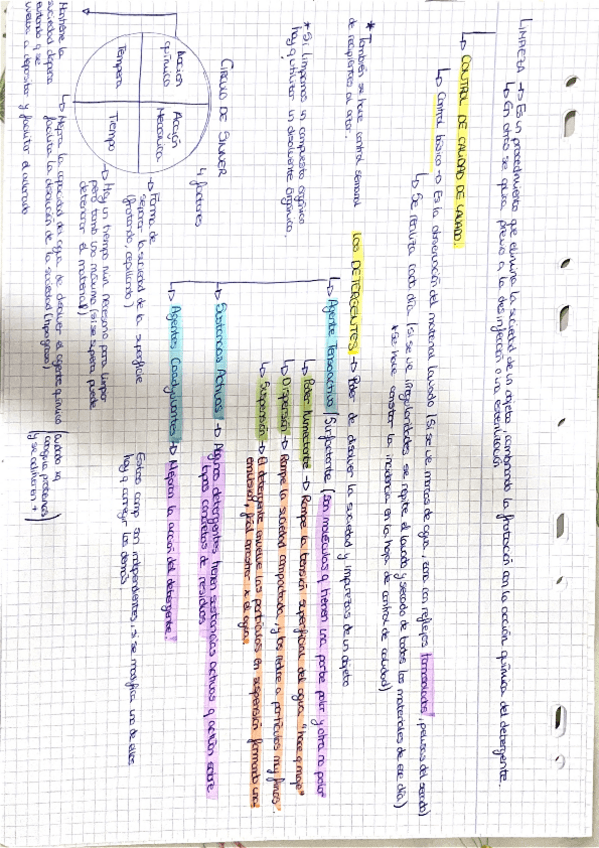 LIMPIEZA → Es un procedimiento que elimina la suciedad de un objeto, combinando la frotación con la acción química del detergente.
↳ En otras se quita previo a la desinfección o un esterilización
↳ CONTROL DE CALIDAD DE LAVADO.
↳ Control básico → Es la observación del material lavado (Si se ve marcas de agua, con reflejos tornasolados, del secado)
↳ Se realiza cada día (si se ve irregularidades se repite el lavado y secado de todos los materiales de ese día)
* Se hace constar la incidencia en la hoja de control de calidad)
* También se hace control semanal
de recipientes al azar.
* Si limpiamos un compuesto orgánico
hay q utilizar un disolvente Orgánico.
LOS DETERGENTES → Poder de disolver la suciedad y impurezas de un objeto
↳ Agente Tensoactivo/Surfactante (son moléculas q tienen una parte polar y otra no polar
↳ Poder Humectante → Rompe la tensión superficial del agua "hace q moje"
↳ Dispersión → Rompe la suciedad compactada, y los reduce a partículas muy finas.
↳ Suspensión → El detergente envuelve las partículas en suspensión formando una
emulsión, fácil arrastrar x el agua
↳ Sustancias Activas → Algunos detergentes tienen sustancias activas q actúan sobre
tipos concretos de residuos
↳ Agentes Coadyuvantes → Mejoran la acción del detergente
CÍRCULO DE SINNER
4 factores
Acción
química
Acción
Mecánica
Tempera
Tiempo
→ Forma de
separar la suciedad de la superficie
(frotando, cepillando)
→ Hay un tiempo min necesario para limpiar
pero tamb uno máximo (si se supera puede
deteriorar el material)
Estos camp son independientes, si se modifica uno de ellos
hay q corregir los demás.
↳ Mejora la capacidad de agua de disolver el agente químico
facilita la disolución de la suciedad (tipo grasa)
(Cuidado xq
coagula proteínas
y se adhieren +)
Mantiene la
suciedad dispersa
evitando q se
vuelva a depositar y facilitar el aclarado